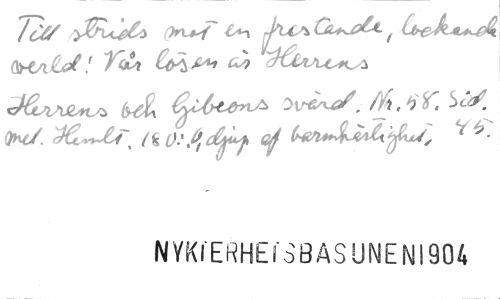 Till strids mot en frestande, lockande
verld! Vår lösen är Herrens
Herrens och Gibeons svärd. Nr. 58. Sid.
mel. Hemlt. 180: O, djup af barmhärtighet, 45.
NYKTERHETSBASUNEN1904